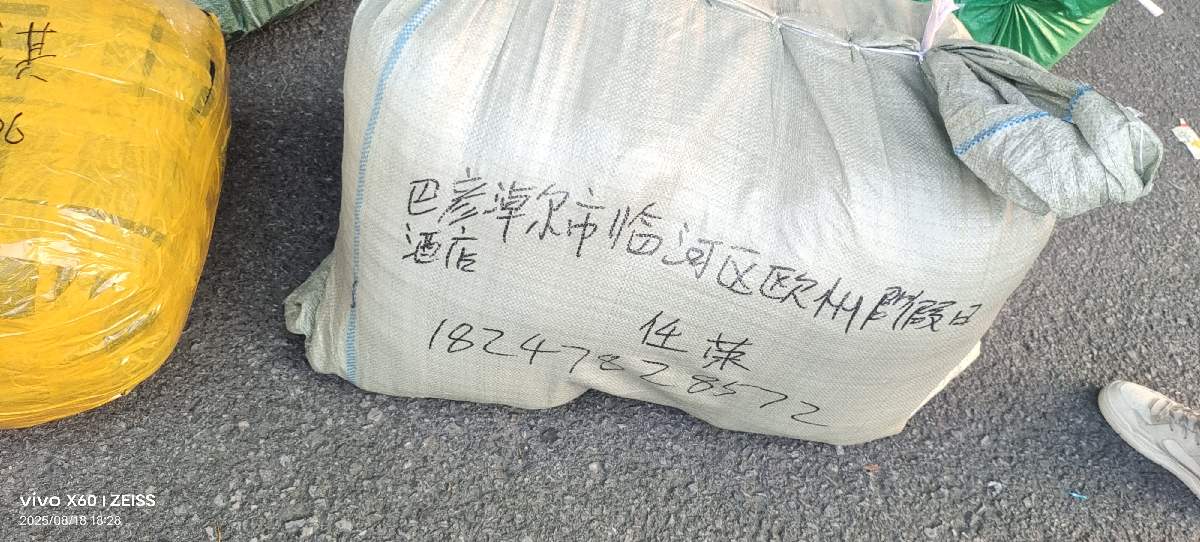 其
06
巴彦淖尔市临河区欧州阶假日
酒店
任荣
18247828572
vivo X60 | ZEISS
2025/08/18 18:28